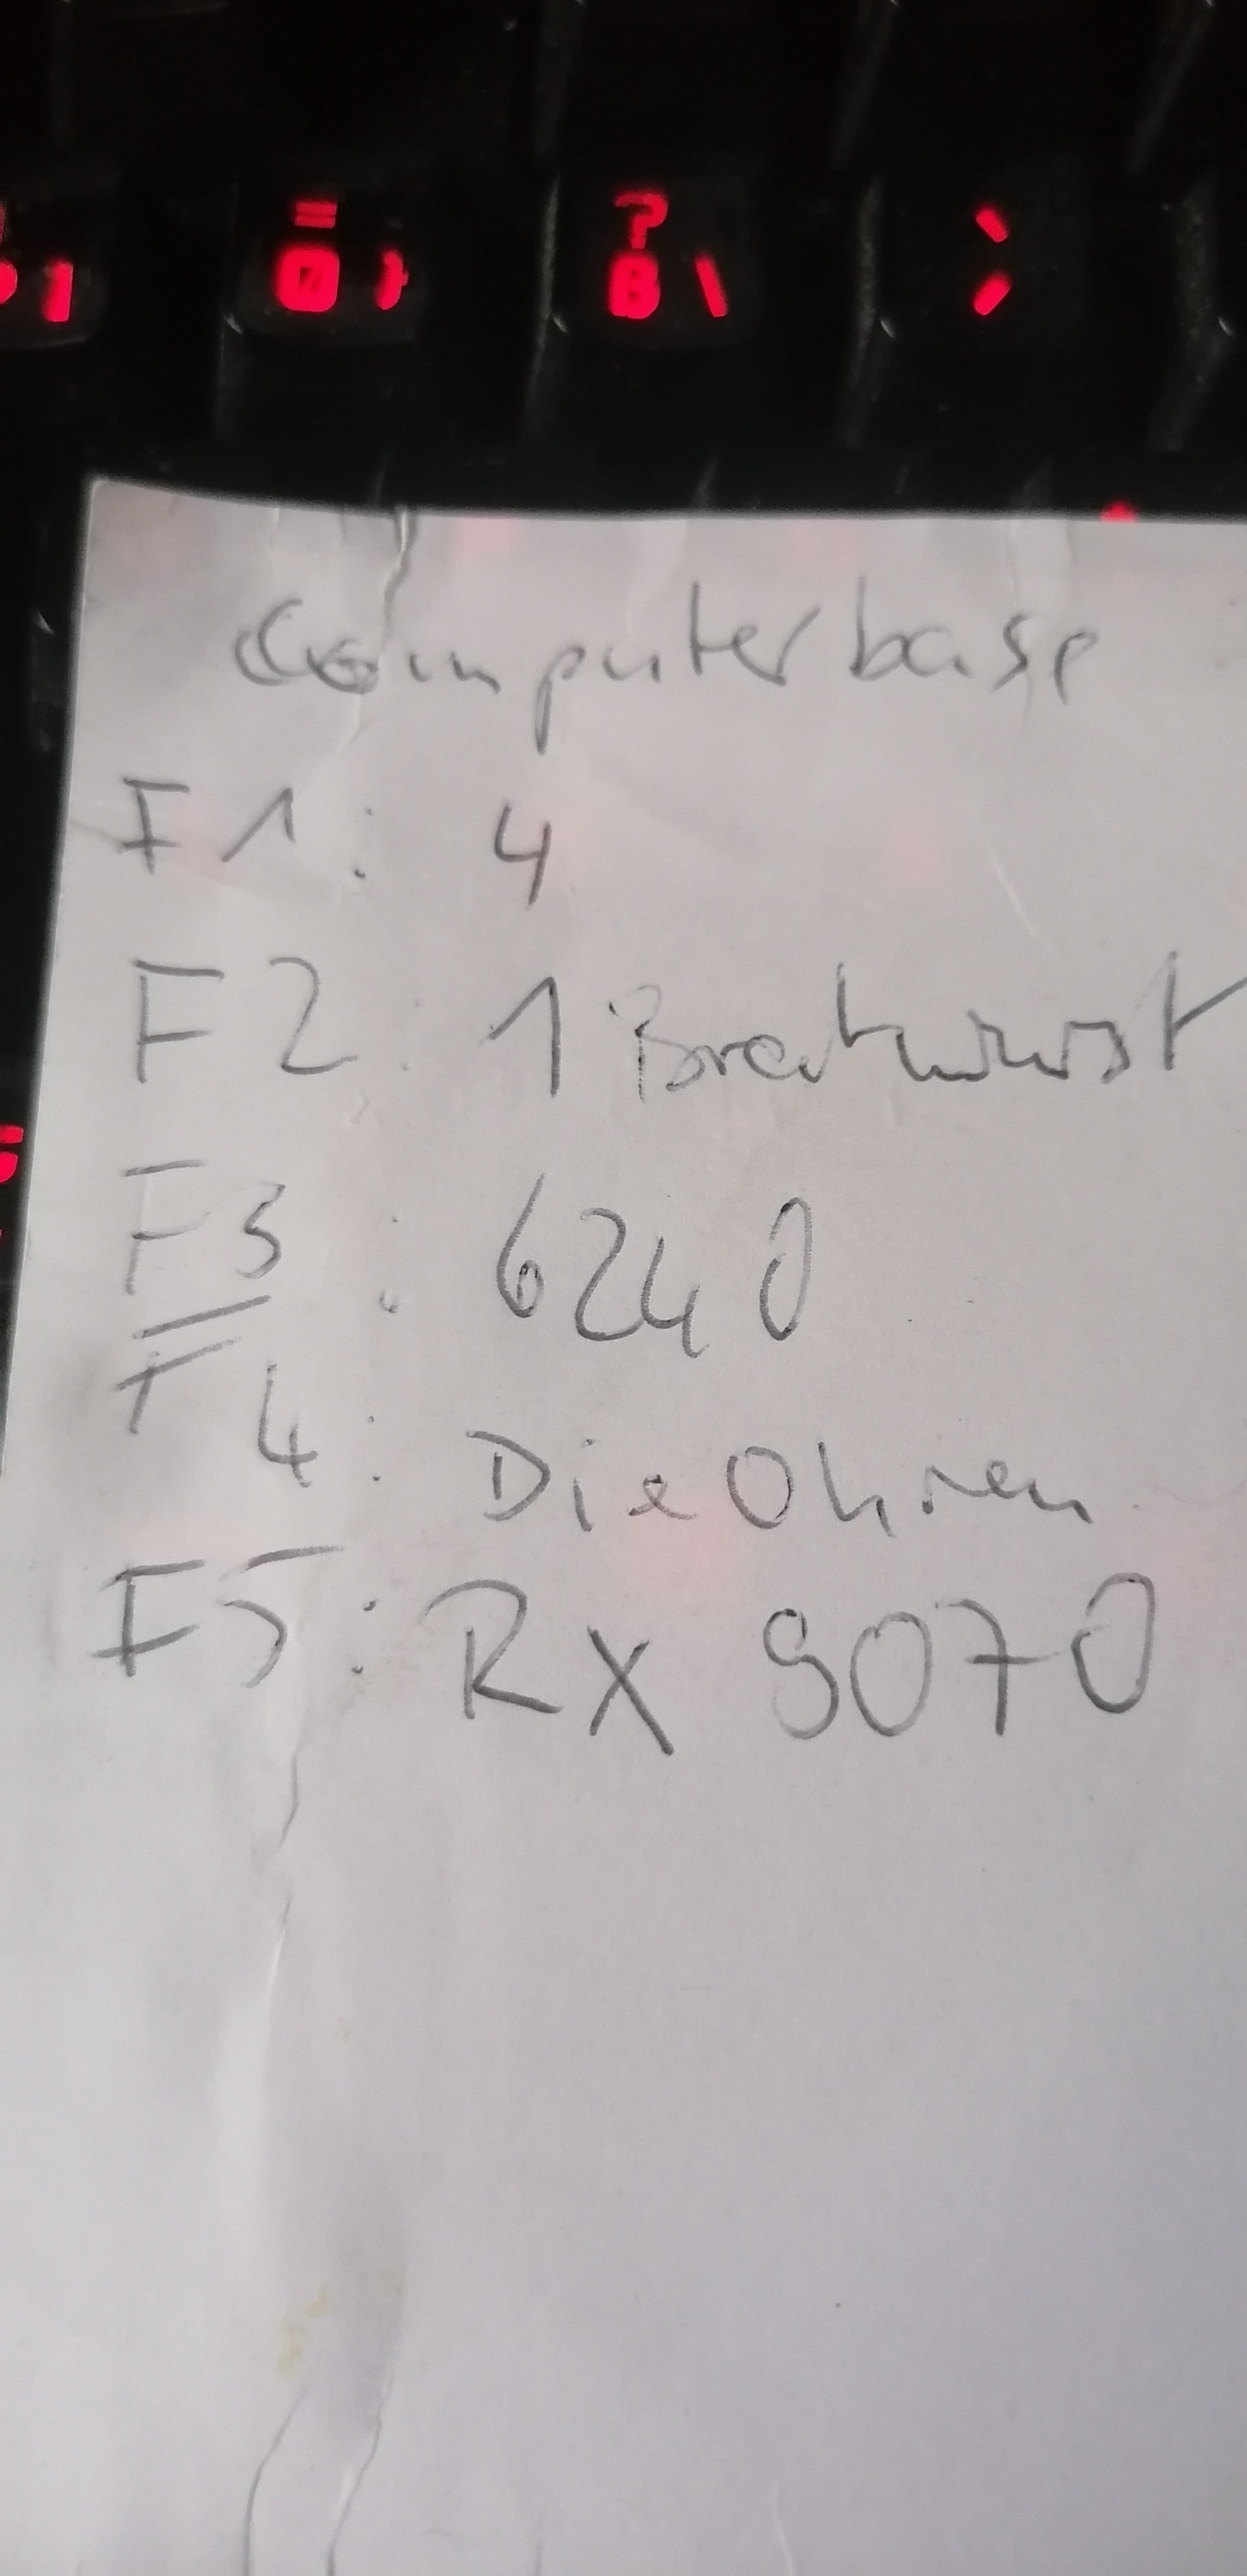 = ?
1 0 } ß \ ` ´
Computerbase
F1: 4
F2: 1 Bratwurst
F3: 6240
F4: Die Ohren
F5: RX 9070